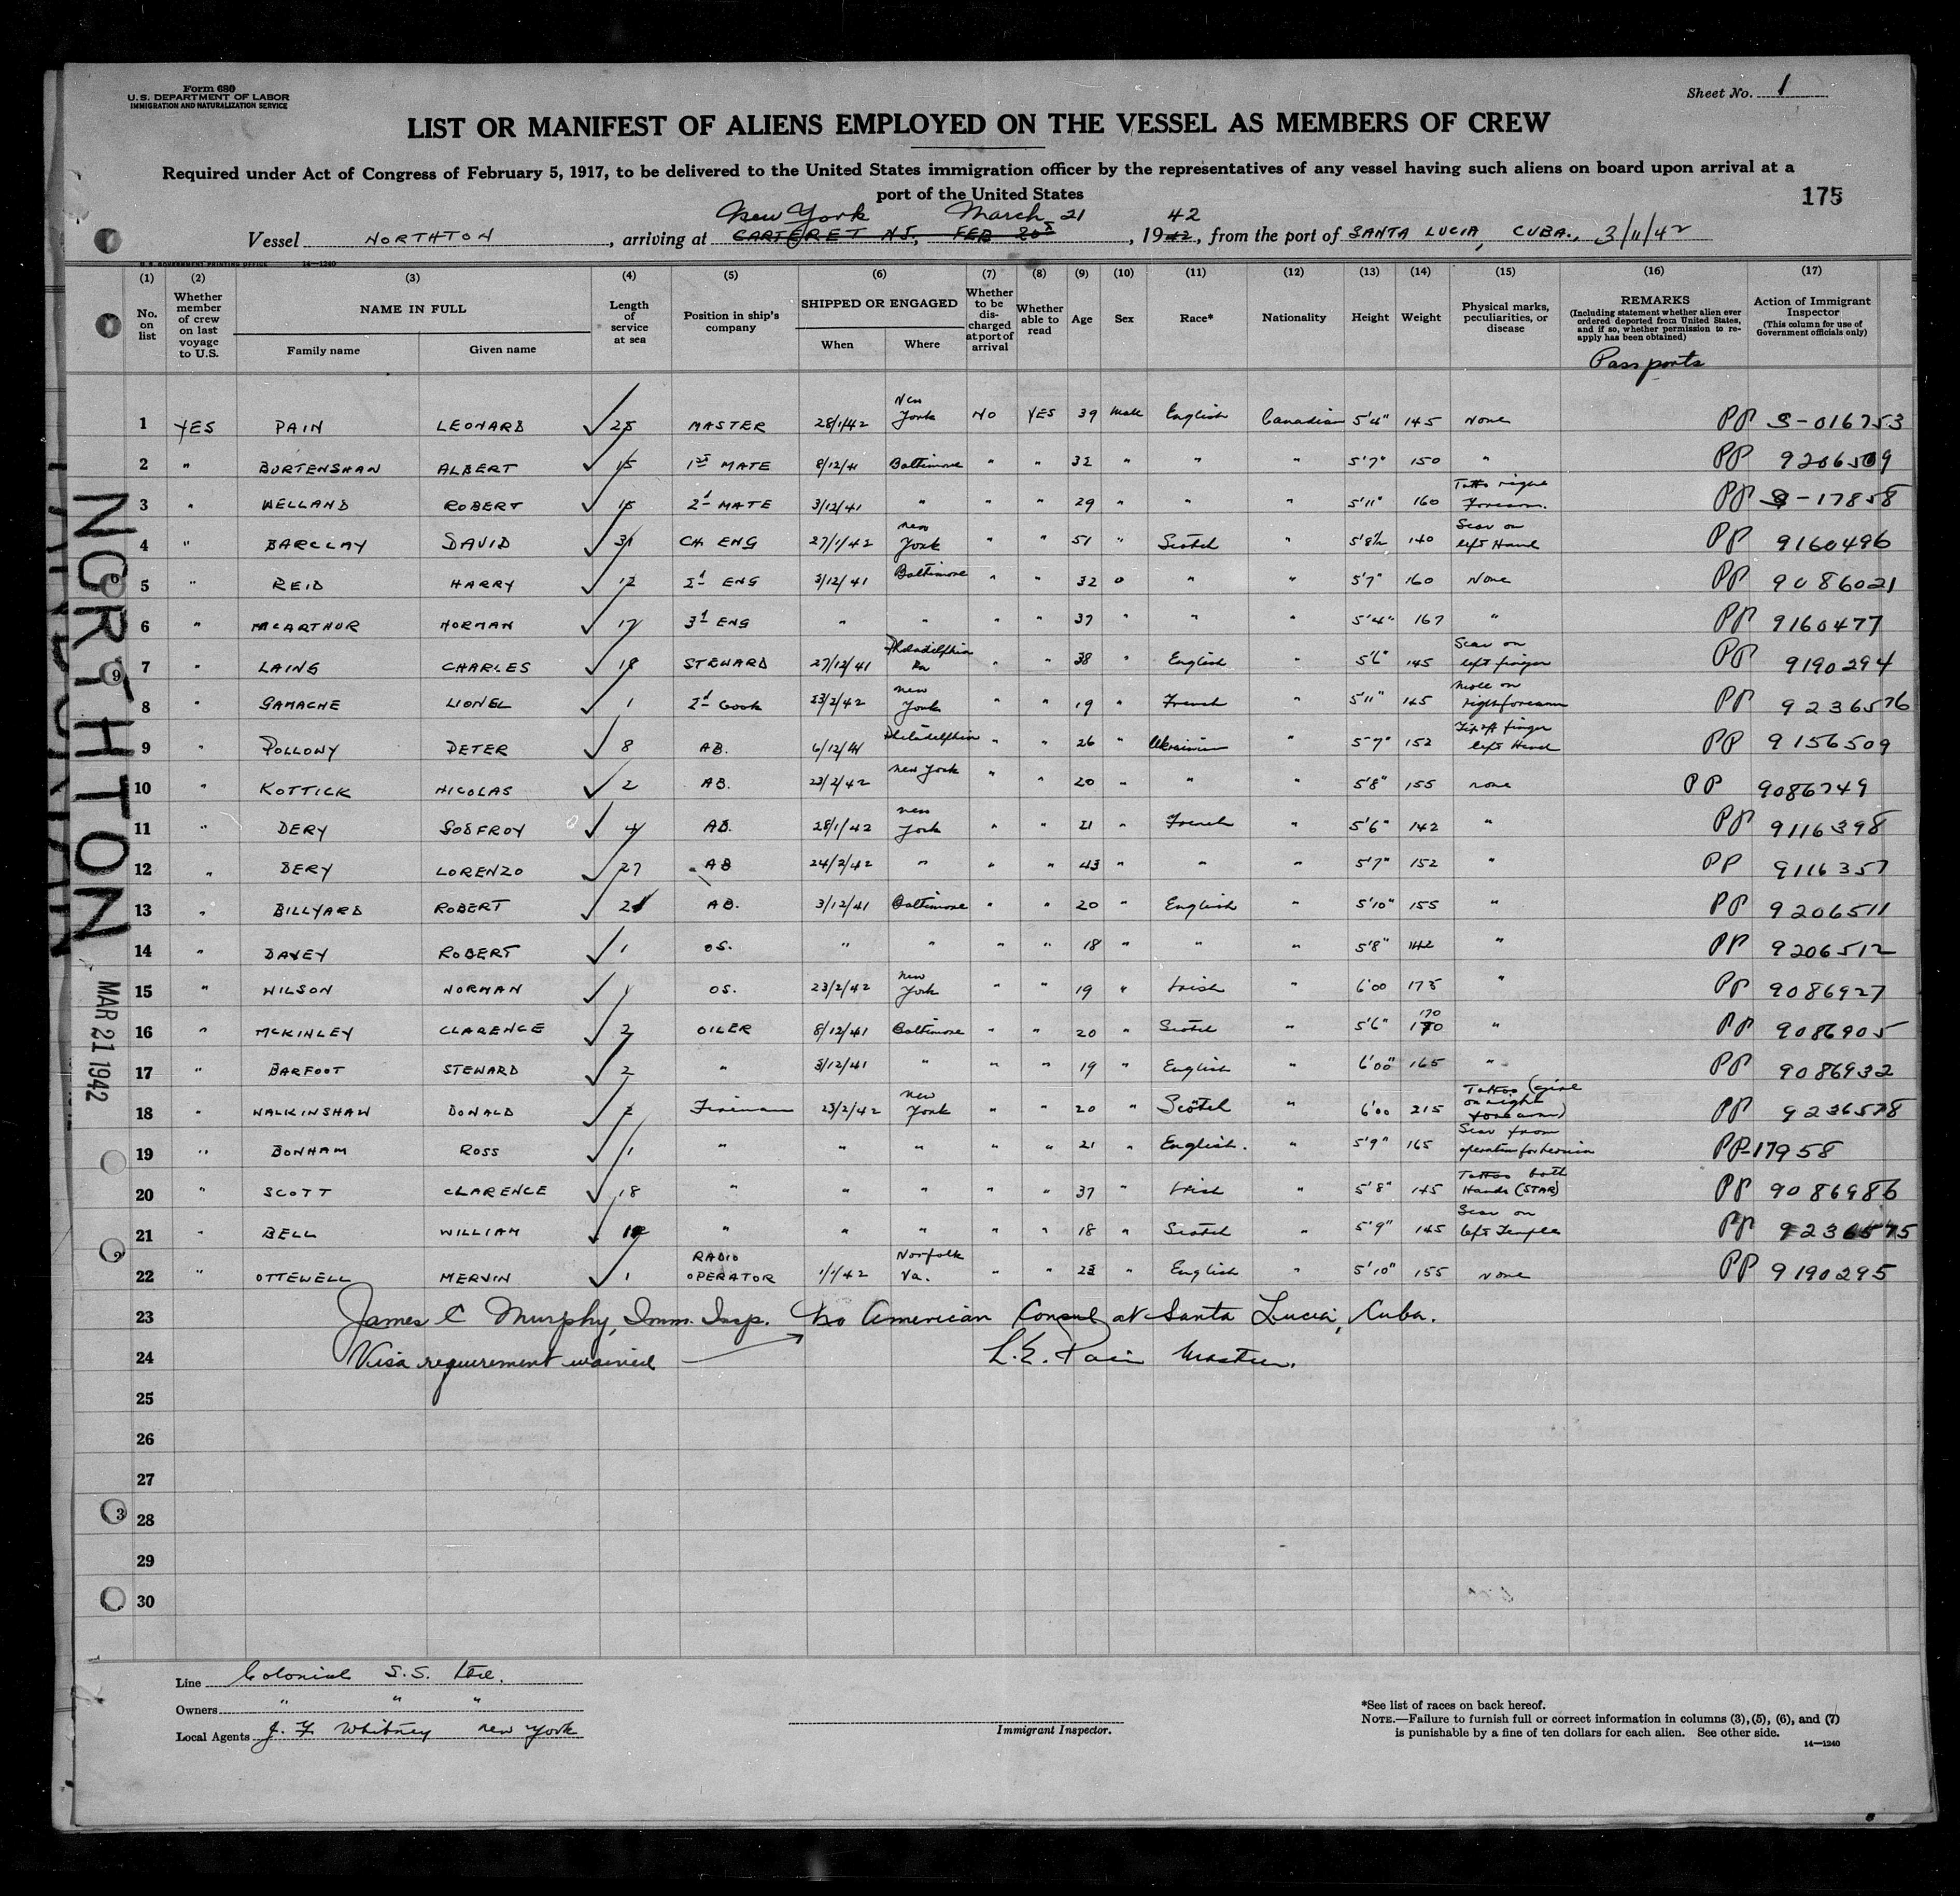 Form 680
U.S. DEPARTMENT OF LABOR
IMMIGRATION AND NATURALIZATION SERVICE
Sheet No. 1
LIST OR MANIFEST OF ALIENS EMPLOYED ON THE VESSEL AS MEMBERS OF CREW
Required under Act of Congress of February 5, 1917, to be delivered to the United States immigration officer by the representatives of any vessel having such aliens on board upon arrival at a
port of the United States
175
New York March 21 42
Vessel NORTHTON, arriving at CARTERET NJ, FEB 20, 1942, from the port of SANTA LUCIA, CUBA., 3/11/42
U. S. GOVERNMENT PRINTING OFFICE 14—1240
(1) (2) (3) (4) (5) (6) (7) (8) (9) (10) (11) (12) (13) (14) (15) (16) (17)
No. on list
Whether member of crew on last voyage to U.S.
NAME IN FULL
Family name Given name
Length of service at sea
Position in ship's company
SHIPPED OR ENGAGED
When Where
Whether to be discharged at port of arrival
Whether able to read
Age
Sex
Race*
Nationality
Height
Weight
Physical marks, peculiarities, or disease
REMARKS
(Including statement whether alien ever ordered deported from United States, and if so, whether permission to reapply has been obtained)
Passports
Action of Immigrant Inspector
(This column for use of Government officials only)
1 YES PAIN LEONARD 25 MASTER 28/1/42 New York NO YES 39 Male English Canadian 5'4" 145 None PP S-016753
2 " BURTENSHAW ALBERT 15 1st MATE 8/12/41 Baltimore " " 32 " " " 5'7" 150 " PP 9206509
3 " WELLAND ROBERT 15 2d MATE 3/12/41 " " " 29 " " " 5'11" 160 Tatto right Forearm. PP S-17858
4 " BARCLAY DAVID 31 CH ENG 27/1/42 New York " " 51 " Scotch " 5'8½ 140 Scar on left Hand PP 9160496
5 " REID HARRY 12 2d ENG 3/12/41 Baltimore " " 32 " " " 5'7" 160 None PP 9086021
6 " MCARTHUR NORMAN 17 3d ENG " " " " 37 " " " 5'4" 167 " PP 9160477
7 " LAING CHARLES 18 STEWARD 27/12/41 Philadelphia Pa " " 38 " English " 5'6" 145 Scar on left finger PP 9190294
8 " GAMACHE LIONEL 1 2d Cook 23/2/42 New York " " 19 " French " 5'11" 145 Mole on right forearm PP 9236576
9 " POLLONY PETER 8 AB. 6/12/41 Philadelphia " " 26 " Ukrainian " 5'7" 152 Tip of finger left Hand PP 9156509
10 " KOTTICK NICOLAS 2 AB. 23/2/42 New York " " 20 " " " 5'8" 155 none PP 9086749
11 " DERY GODFROY 4 AB. 28/1/42 New York " " 21 " French " 5'6" 142 " PP 9116398
12 " DERY LORENZO 27 AB 24/2/42 " " " 43 " " " 5'7" 152 " PP 9116357
13 " BILLYARD ROBERT AB. 3/12/41 Baltimore " " 20 " English " 5'10" 155 " PP 9206511
14 " DAVEY ROBERT 1 OS. " " " " 18 " " " 5'8" 142 " PP 9206512
15 " WILSON NORMAN 1 OS. 23/2/42 New York " " 19 " Irish " 6'00 175 " PP 9086927
16 " MCKINLEY CLARENCE 2 OILER 8/12/41 Baltimore " " 20 " Scotch " 5'6" 170 170 " PP 9086905
17 " BARFOOT STEWARD 2 " 3/12/41 " " " 19 " English " 6'00" 165 " PP 9086932
18 " WALKINSHAW DONALD 2 Fireman 23/2/42 New York " " 20 " Scotch " 6'00 215 Tattoo (girl on right forearm) PP 9236578
19 " BONHAM ROSS 1 " " " " " 21 " English. " 5'9" 165 Scar from operation for hernia PP-17958
20 " SCOTT CLARENCE 18 " " " " " 37 " Irish " 5'8" 145 Tattoo both Hands (STAR) PP 9086986
21 " BELL WILLIAM " " " " " 18 " Scotch " 5'9" 145 Scar on left Temple PP 9236575
22 " OTTEWELL MERVIN 1 RADIO OPERATOR 1/1/42 Norfolk Va. " " 23 " English " 5'10" 155 None PP 9190295
23 James C Murphy, Imm. Insp. No American Consul at Santa Lucia, Cuba.
24 Visa requirement waived L.E. Pain Master.
25
26
27
28
29
30
NORTHTON
MAR 21 1942
Line Colonial S.S. Ltd.
Owners " " "
Local Agents J. F. Whitney New York
Immigrant Inspector.
*See list of races on back hereof.
NOTE.—Failure to furnish full or correct information in columns (3), (5), (6), and (7)
is punishable by a fine of ten dollars for each alien. See other side.
14—1240